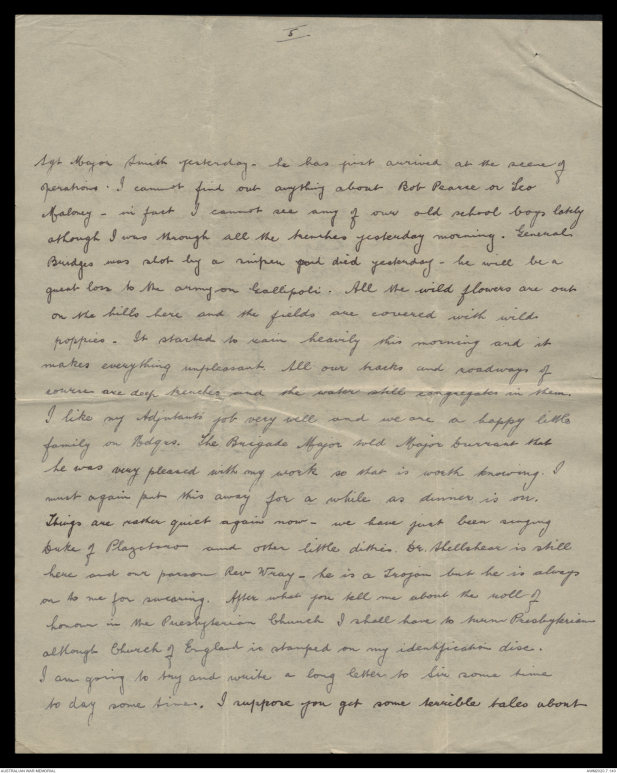 5
Sgt Major Smith yesterday - he has just arrived at the scene of
operations. I cannot find out anything about Bob Pearse or Leo
Maloney - in fact I cannot see any of our old school boys lately
athough I was through all the trenches yesterday morning. General
Bridges was shot by a sniper and died yesterday - he will be a
great loss to the army on Gallipoli. All the wild flowers are out
on the hills here and the fields are covered with wild
poppies. It started to rain heavily this morning and it
makes everything unpleasant. All our tracks and roadways of
course are deep trenches and the water still congregates in them.
I like my Adjutants job very well and we are a happy little
family on Hdqrs. The Brigade Major told Major Durrant that
he was very pleased with my work so that is worth knowing. I
must again put this away for a while as dinner is on.
Things are rather quiet again now - we have just been singing
Duke of and other little ditties. Dr. Shellshear is still
here and our parson Rev Wray - he is a Trojan but he is always
on to me for swearing. After what you tell me about the roll of
honour in the Presbyterian Church I shall have to turn Presbyterian
although Church of England is stamped on my identification disc.
I am going to try and write a long letter to Sir some time
to day some time. I suppose you get some terrible tales about
AUSTRALIAN WAR MEMORIAL